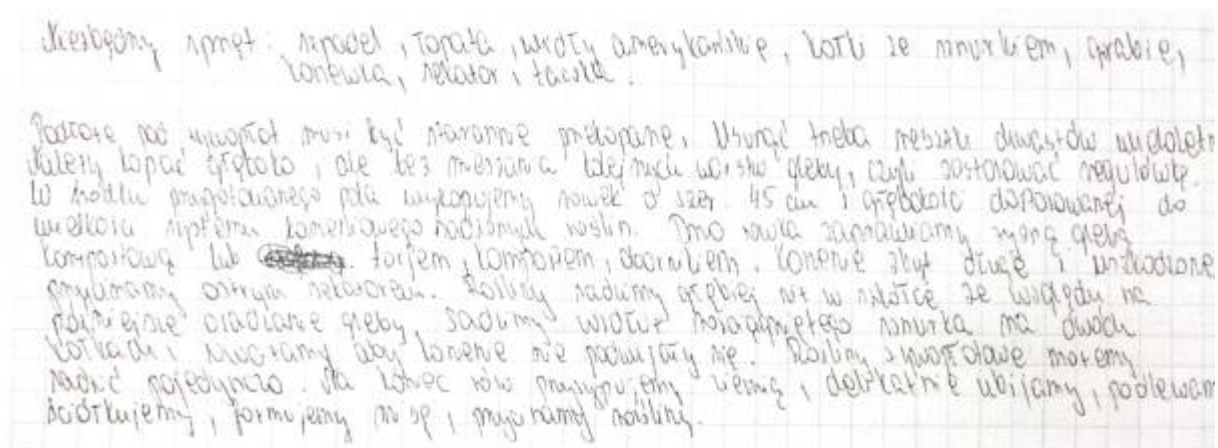 Niezbędny sprzęt: szpadel, łopata, widły amerykańskie, kołki ze sznurkiem, grabie,
konewka, sekator, taczka.
Podłoże pod żywopłot musi być starannie przekopane. Usunąć trzeba resztki chwastów
Należy kopać głęboko, ale bez mieszania kolejnych warstw gleby, czyli zastosować regulówkę.
W środku przygotowanego pola wykopujemy rowek o szer. 45 cm i głębokości dopasowanej do
wielkości systemu korzeniowego sadzonych roślin. Dno rowka zaprawiamy żyzną glebą
kompostową lub torfem, kompostem, obornikiem. Korzenie zbyt długie i uszkodzone
przycinamy ostrym sekatorem. Rośliny sadzimy głębiej niż w szkółce ze względu na
późniejsze osiadanie gleby. Sadzimy wzdłuż rozciągniętego sznurka na dwóch
kołkach i uważamy aby korzenie nie podwijały się. Rośliny żywopłotowe możemy
sadzić pojedynczo. Na koniec rów przysypujemy ziemią, delikatnie ubijamy, podlewam
ściółkujemy, formujemy, przycinamy rośliny.